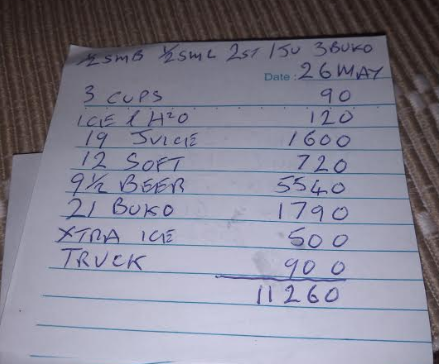 ½ SMB ½ SML 2ST 1JU 3BUKO
Date: 26 MAY
3 CUPS 90
ICE & H²O 120
19 JUICIE 1600
12 SOFT 720
9½ BEER 5540
21 BUKO 1790
XTRA ICE 500
TRUCK 900
11260